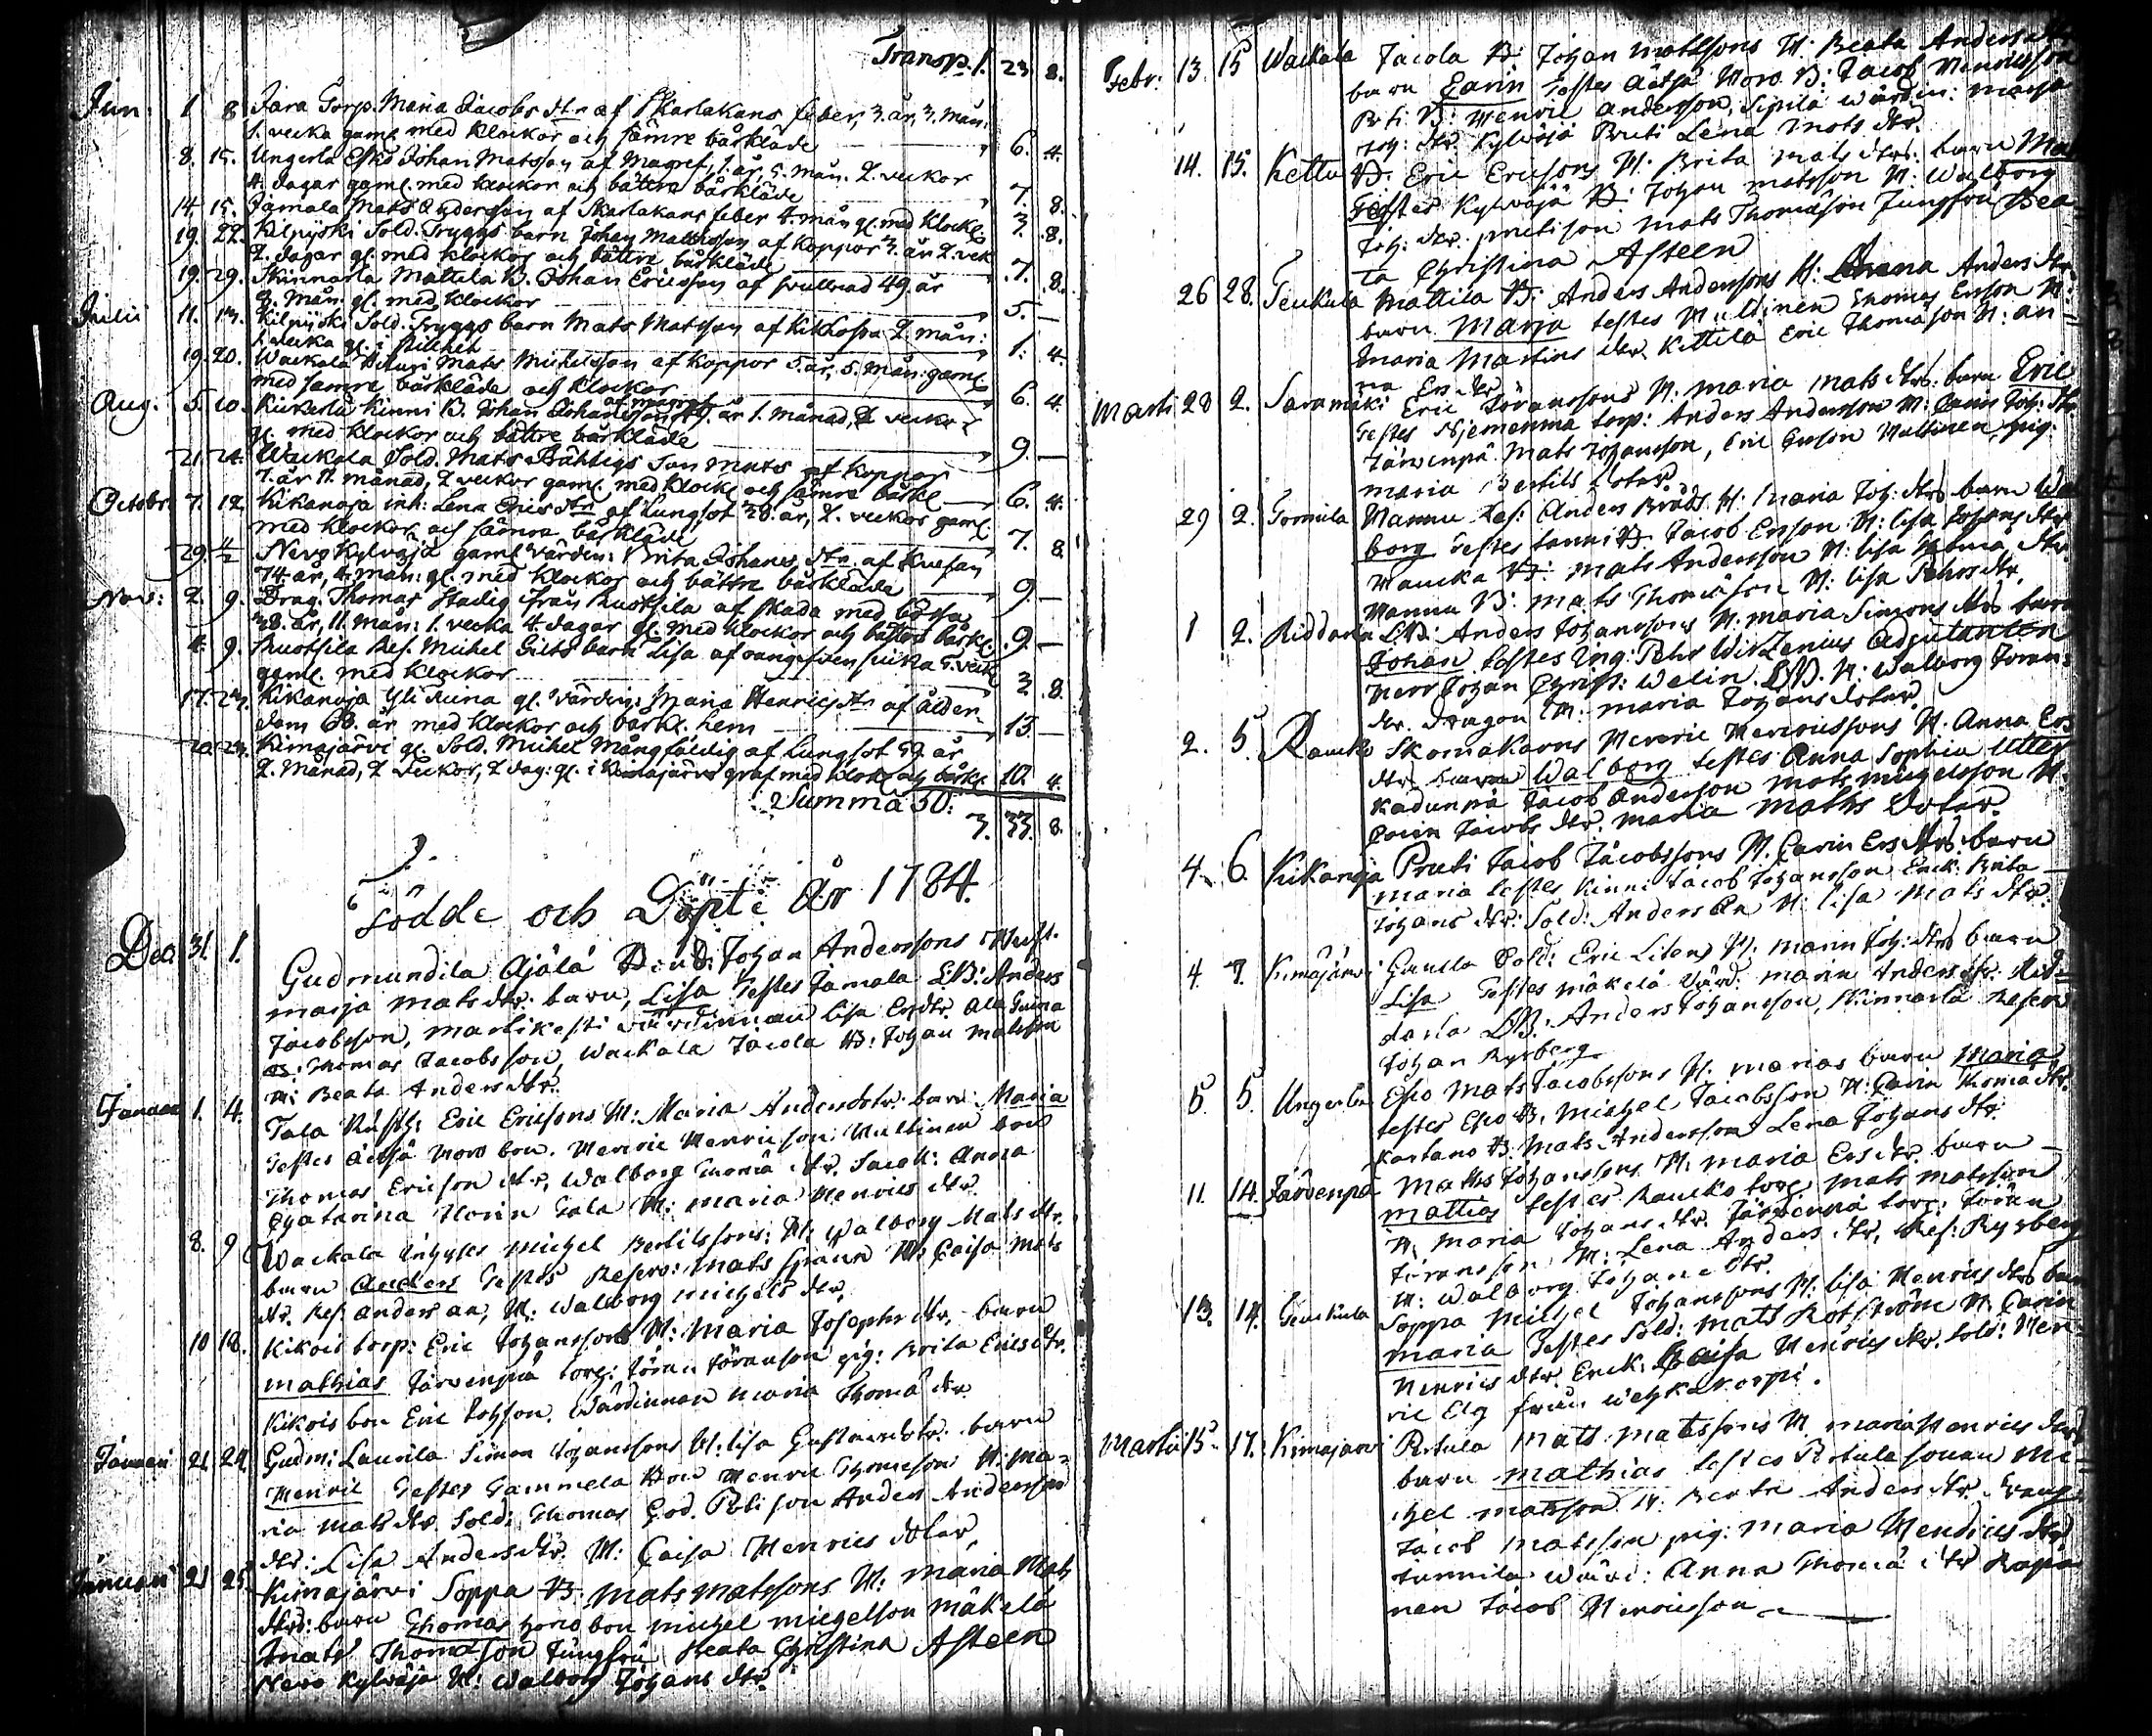 Transp. 1. 23. 8.
Jun: 1 8 Jara Torp. Maria Jacobs dtr af Skarlakans feber, 3. år, 3. mån:
1. vecka gaml. med klockor och sämre bårkläde 6. 4.
8. 15. Ungerla Esko Johan Matsson af Magref, 1. år, 5. mån. 2. veckor
4. dagar gaml. med klockor och bättre bårkläde 7. 8.
14. 15. Jamala Mats Andersson af Skarlakans feber 4. mån gl. med klock: 3. 8.
19. 22. Kilpijoki Sold. Tryggs barn Johan Mattsson af koppor 3. år 2. vek
2. dagar gl. med klockor och bättre bårkläde 7. 8.
19. 29. Skinnarla Mattala B. Johan Ericsson af 49. år
3. Mån. gl. med klockor 5. —
Julii 11. 13. Kilpijoki Sold. Tryggs barn Mats Matsson af kikhosta 2. mån:
1. vecka gl. i stillhet 1. 4.
19. 20. Wackala Mats Michelsson af koppor 5. år, 5. mån: gaml.
med sämre bårkläde och klockor 6. 4.
af magref
Aug. 5. 10. Kirkerla Kinni B. Johan Johansson år 1. månad, 2 veckor
gl. med klockor och bättre bårkläde 9. —
21. 24. Wackala Sold. Mats son Mats af koppor
7. år 11. månad, 2 veckor gaml. med klock och sämre bårkl. 6. 4.
Octobr. 7. 12. Kikanoja inh: Lena Erics dtr af Lungsot 38. år, 2. veckor gaml
med klockor och sämre bårkläde 7. 8.
29. Nero Kylvöjä gaml. värdin: Brita Johans dtr. af
74. år, 4. mån: gl. med klockor och bättre bårkläde 9. —
Nov: 2. 9. Drag. Thomas Stadig från Ruohsila af skada med bössa
38. år, 11. mån: 1. vecka 4. dagar gl. med klockor och bättre bårkl. 9. —
4. 9. Ruohsila Res. Michel Gilts barn Lisa af 5. veck
gaml. med klockor 3. 8.
17. 23. Kikanoja Yli gl. värdin: Maria Henrics dtr af ålder-
dom 68. år med klockor och bårkl. hem 13. —
20. 23. Kimajärvi gl. Sold. Michel Mångfäldig af Lungsot 59. år
2. Månad, 2 Veckor, 2 dag: gl. i Kimajärvi graf med klock och bårkl. 10. 4.
Summa 50:
3. 33. 8.
Födde och Döpte År 1784.
Dec. 31. 1. Gudmundila Ajälä Johan Anderssons Hust.
Marja Mats dtr. barn, Lisa Testes Jamala L:B: Anders
Jacobsson, Martikesti värdinnan Lisa Ersdtr. Ala
B: Thomas Jacobsson, Wackala Jacola B: Johan Matsson
H: Beata Anders dtr.
Januar 1. 4. Tala Rusth: Eric Ericsons H: Maria Andersdotr: barn Maria
Testes Äetsä Horo bon. Henric Henricson: Multinen bon
Thomas Ericson dtr, Walborg Thomä dtr. Anna
Chatarina Tala H: Maria Henrics dtr.
8. 9 Wackala Inhyses Michel Bertilssons: H: Walborg Mats dtr.
barn Anders Testes Reserv: Mats H: Caisa Mats
dtr. Res. Anders An, H: Walborg Michels dtr.
10 18. Kikois torp: Eric Johanssons H: Maria Josephs dtr, barn
Mathias Järvenpä torp: Jöran Jöranson pig: Brita Erics dtr.
Kikois bon Eric Johson. Wärdinnan Maria Thomä dtr
Januari 21 24. Gudm: Laurila Simon Johanssons H: Lisa Gustavsdtr. barn
Henric Testes Gammela Bon Henric Thomson H: Ma=
ria Mats dtr. Sold: Thomas God. Prti son Anders Andersson
dtr: Lisa Anders dtr. H: Caisa Henrics dotter
Januari 21 25 Kimajärvi Soppa B: Mats Matssons H: Maria Mats
dtrs: barn Thomas Horo bon Michel Michelson Mäkelä
Mats Thomason Jungfru Beata Christina Asteen
Nero Kylvöjä H: Walborg Johans dtr.
Febr: 13. 15 Wackala Jacola B: Johan Mattsons H: Beata Anders dtrs
barn Carin Testes Äetsä Horo B: Jacob Henricsson
Prti B: Henric Anderson, Sipilä värdin: Marja
Joh: dtr. Kylvöjä Pruti Lena Mats dtr.
14. 15. Kettu B. Eric Ericsons H: Brita Mats dtrs: barn
Testes Kylvöjä B: Johan Matsson H: Walborg
Joh: dtr. Mats Thomason Jungfru Bea=
ta Christina Asteen
26 28. Teukula Mattila B: Anders Anderssons H: Anna Anders dtr
barn Marja testes Multinen Thomas Ersson H:
Maria Martins dtr. Kettilä Eric Thomason H: An=
na Ers dtr
Marti 28 2. Saramäki Eric Jöranssons H: Maria Mats dtrs: barn Eric
Testes Niemenmä torp: Anders Andersson H: Carin Joh: dtr
Järvenpä Mats Johansson, Eric Ersson Multinen, pig:
Maria Bertils dotr.
29 2. Tomula Wannu Res: Anders Bråds H: Maria Joh: dtrs barn Wal
borg Testes B Jacob Ersson H: Lisa Johans dtr
B: Mats Andersson H: Lisa Thomä dtr
Wannu B: Mats Thomäson H: Lisa Pehrs dtr.
1 2. Riddarla L:B: Anders Johanssons H: Maria Simons dtrs barn
Johan testes Ing: Pehr Adjutanten
Herr Johan Christ: Welin. L:B. H: Walborg Jörans
dtr. Dragon H: Maria Johans doter.
2. 5 Raucko Skomakarens Henric Henricssons H. Anna Ers
dtr barn Walborg testes Anna Sophia Utter
Kadunpä Jacob Anderson Mats Michelsson H.
Carin Jacobs dtr. Maria Maths Doter.
4. 6. Kikanoja Pruti Jacob Jacobssons H. Carin Ers dtrs: barn
Maria testes Kinni Jacob Johansson Enck: Brita
Johans dtr: Sold: Anders An H: Lisa Mats dtr:
4. 7. Kimajärvi Sold: Eric Litens H: Marin Joh: dtrs barn
Lisa Testes Mäkelä Värd: Marin Anders dtr. Rid=
darla L:B: Anders Johansson, Skinnarla Reserv
Johan Ryrberg
5. 5. Ungerla Esko Mats Jacobssons H: Marias barn Maria
testes Esko B, Michel Jacobsson H: Carin Thomä dtr.
Kartano B. Mats Andersson Lena Johans dtr.
11. 14. Järvenpä Maths Johanssons H: Maria Ers dtr. barn
Mattias testes Raucko torp Mats Matsson
H: Maria Johans dtr. Järvenpä torp: Jöran
Jöransson H: Lena Anders dtr, Res: Ryrberg
H: Walborg Johans dtr.
13. 14. Teukula Soppa Michel Johanssons H: Lisa Henrics dtrs barn
Maria Testes Sold: Mats Rotström H: Carin
Henrics dtr. Enck: Caisa Henrics dtr. Sold: Hen=
ric Elg från
Martii 15. 17. Kimajärvi Mats Matssons H Maria Henrics dtrs
barn Mathias testes sonen Mi=
chel Matsson H: Beata Anders dtr.
Jacob Matsson pig: Maria Henrics dtr
värd: Anna Thomä dtr
nen Jacob Henricsson